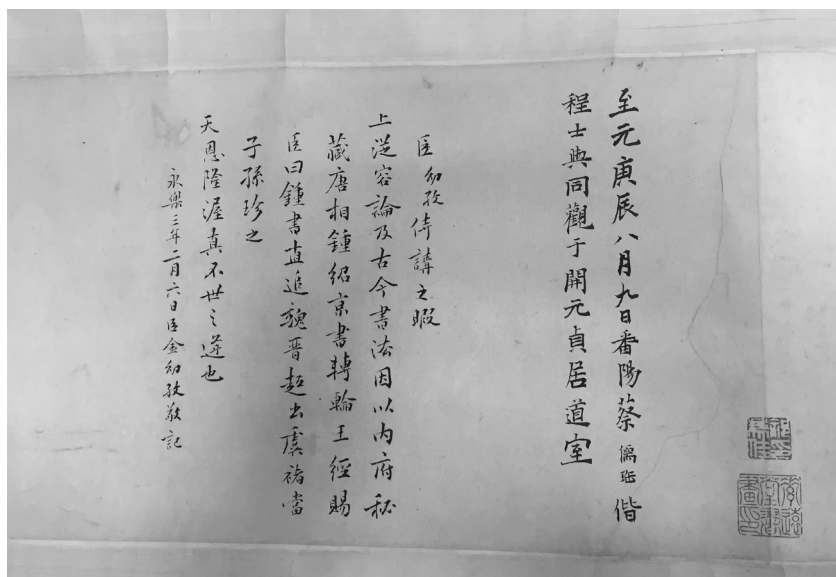 至元庚辰八月九日番陽蔡儒偕
程士與同觀于開元貞居道室
臣幼孜侍講之暇
上從容論及古今書法因以內府秘
藏唐相鍾紹京書轉輪王經賜
臣曰鍾書直追魏晉超出虞褚當
子孫珍之
天恩隆渥真不世之遘也
永樂三年二月六日臣金幼孜敬記